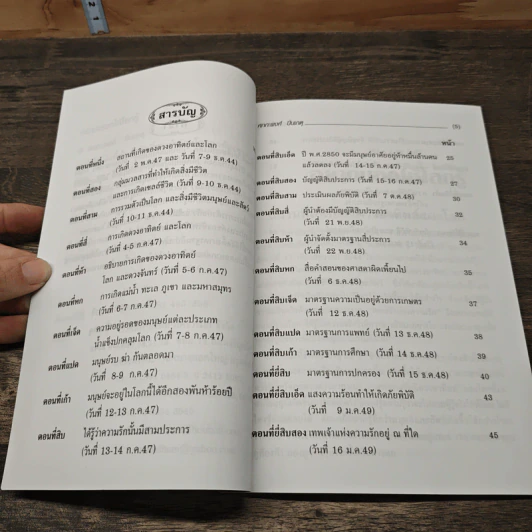 สารบัญ
ตอนที่หนึ่ง สถานที่เกิดของดวงอาทิตย์และโลก
(วันที่ 2 พ.ค.47 และ วันที่ 7-9 ธ.ค.44)
ตอนที่สอง กลุ่มมวลสารที่ทำให้เกิดสิ่งมีชีวิต
และการเกิดเซลล์ชีวิต (วันที่ 9-10 ธ.ค.44)
ตอนที่สาม การรวมตัวเป็นโลก และสิ่งมีชีวิตมนุษย์และสัตว์
(วันที่ 10-11 ธ.ค.44)
ตอนที่สี่ การเกิดดวงอาทิตย์ และโลก
(วันที่ 4-5 ก.ค.47)
ตอนที่ห้า อธิบายการเกิดของดวงอาทิตย์
โลก และดวงจันทร์ (วันที่ 5-6 ก.ค.47)
ตอนที่หก การเกิดแม่น้ำ ทะเล ภูเขา และมหาสมุทร
(วันที่ 6-7 ก.ค.47)
ตอนที่เจ็ด ความอยู่รอดของมนุษย์แต่ละประเภท
น้ำแข็งปกคลุมโลก (วันที่ 7-8 ก.ค.47)
ตอนที่แปด มนุษย์รบ ฆ่า กันตลอดมา
(วันที่ 8-9 ก.ค.47)
ตอนที่เก้า มนุษย์จะอยู่ในโลกนี้ได้อีกสองพันห้าร้อยปี
(วันที่ 12-13 ก.ค.47)
ตอนที่สิบ ได้รู้ว่าความรักนั้นมีสามประการ
(วันที่ 13-14 ก.ค.47)
(9)
หน้า
ตอนที่สิบเอ็ด ปี พ.ศ.2850 จะมีมนุษย์อาศัยอยู่ห้าหมื่นล้านคน 25
แล้วลดลง (วันที่ 14-15 ก.ค.47)
ตอนที่สิบสอง บัญญัติสิบประการ (วันที่ 15-16 ก.ค.47) 27
ตอนที่สิบสาม ประเมินผลภัยพิบัติ (วันที่ 7 ต.ค.48) 30
ตอนที่สิบสี่ ผู้นำต้องมีบัญญัติสิบประการ 32
(วันที่ 21 พ.ย.48)
ตอนที่สิบห้า ผู้นำจัดตั้งมาตรฐานสี่ประการ 34
(วันที่ 22 พ.ย.48)
ตอนที่สิบหก สื่อคำสอนของศาสดาผิดเพี้ยนไป 35
(วันที่ 6 ธ.ค.48)
ตอนที่สิบเจ็ด มาตรฐานความเป็นอยู่ด้วยการเกษตร 37
(วันที่ 12 ธ.ค.48)
ตอนที่สิบแปด มาตรฐานการแพทย์ (วันที่ 13 ธ.ค.48) 38
ตอนที่สิบเก้า มาตรฐานการศึกษา (วันที่ 14 ธ.ค.48) 39
ตอนที่ยี่สิบ มาตรฐานการปกครอง (วันที่ 15 ธ.ค.48) 40
ตอนที่ยี่สิบเอ็ด แสงความร้อนทำให้เกิดภัยพิบัติ 43
(วันที่ 9 ม.ค.49)
ตอนที่ยี่สิบสอง เทพเจ้าแห่งความรักอยู่ ณ ที่ใด 45
(วันที่ 16 ม.ค.49)
2